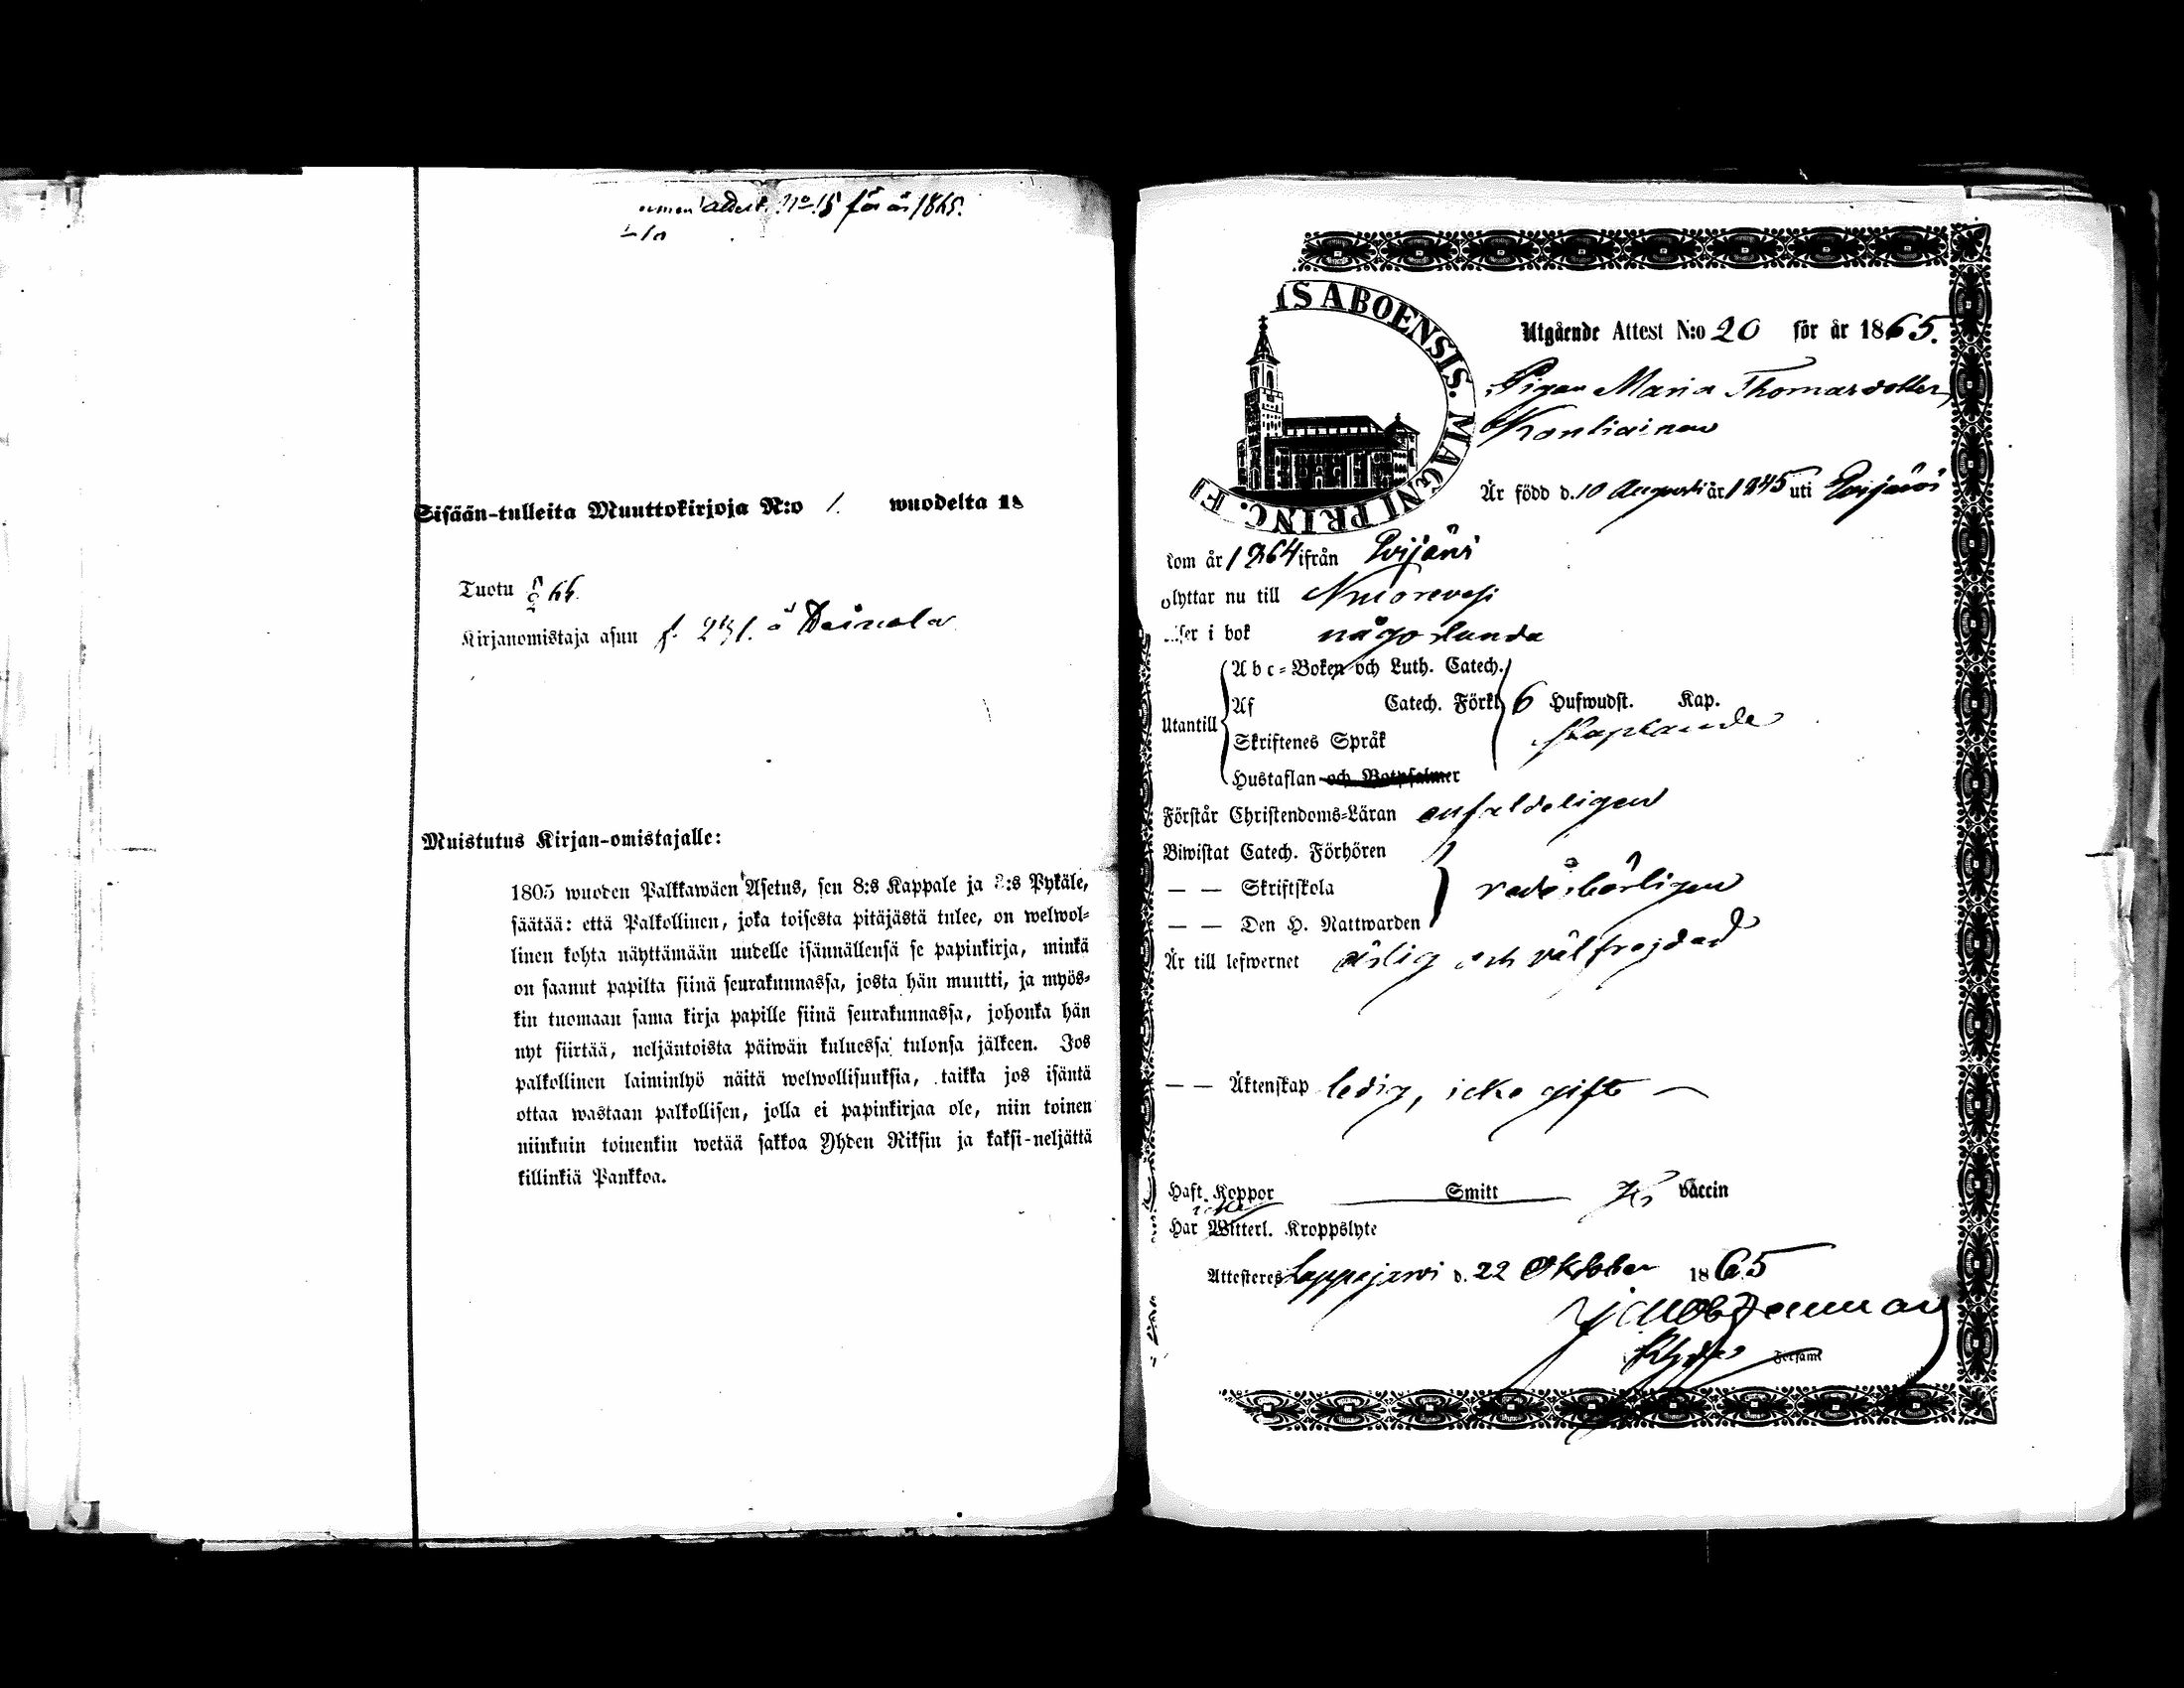 attest. No 15 för år 1865.
Sisään-tulleita Muuttokirjoja N:o 1. wuodelta 18
Tuotu
Kirjanomistaja asuu f. 231. å
Muistutus Kirjan-omistajalle:
1805 wuoden Palkkawäen Asetus, sen 8:s Kappale ja :s Pykäle,
säätää: että Palkollinen, joka toisesta pitäjästä tulee, on welwol=
linen kohta näyttämään uudelle isännällensä se papinkirja, minkä
on saanut papilta siinä seurakunnassa, josta hän muutti, ja myös=
kin tuomaan sama kirja papille siinä seurakunnassa, johonka hän
nyt siirtää, neljäntoista päiwän kuluessa tulonsa jälkeen. Jos
palkollinen laiminlyö näitä welwollisuuksia, taikka jos isäntä
ottaa wastaan palkollisen, jolla ei papinkirjaa ole, niin toinen
niinkuin toinenkin wetää sakkoa Yhden Riksin ja kaksi-neljättä
killinkiä Pankkoa.
IS ABOENSIS. MAGNI PRINC. F
Utgående Attest N:o 20 för år 1865.
Pigan Maria Thomasdotter
Kontiainen
Är född d. 10 Augusti år 1845 uti Evijärvi
kom år 1864 ifrån Evijärvi
flyttar nu till Kuorevesi
läser i bok någorlunda
Utantill
Abc=Boken och Luth. Catech.
Af Catech. Förkl. 6 Hufwudst. Kap.
Skriftenes Språk staplande
Hustaflan och Botpsalmer
Förstår Christendoms=Läran enfaldeligen
Biwistat Catech. Förhören
— — Skriftskola vederbörligen
— — Den H. Nattwarden
Är till lefwernet ärlig och välfrejdad
— — Äktenskap ledig, icke gift —
Haft Koppor Smitt Vaccin
icke
Har Witterl. Kroppslyte
Attesteres Lappajärvi d. 22 Oktober 1865